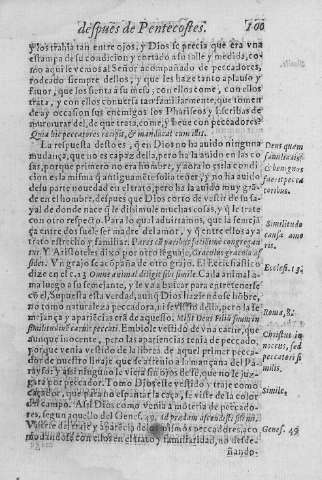 despues de Pentecostes. 100
y los trahia tan entre ojos, y Dios se precia que era vna
estampa de su condicion y cortado a su talle y medida, co-
mo aqui le vemos al Señor acompañado de peccadores,
rodeado siempre dellos, y que les haze tanto aplauso y
fauor, que los sienta a su mesa, con ellos come, con ellos
trata, y con ellos conuersa tan familiarmente, que tomen
de ay occasion sus enemigos los Phariseos y Scribas de
murmurar del, de que trata, come, y beue con peccadores?
Quia hic peccatores recipit, & manducat cum illis.
La respuesta desto es, que en Dios no ha auido ninguna
mudança, que no es capaz della, pero hala auido en las co-
sas, porque primero no era Hombre, y aora lo es, quedando
con la misma q antiguamente solo tenia, y no ha auido
de su parte nouedad en el trato, pero ha la auido muy grã-
de en el hombre, despues que Dios corto de vestir de su ta-
yal de donde nace q le dissimule muchas cosas, y q le trate
con otro respecto. Para lo qual aduirtamos, que la semejã-
ça entre dos suele ser madre del amor, y q entre ellos aya
trato estrecho y familiar. Pares cũ paribus facillime congregan
tur. Y Aristoteles dixo por otro lenguaje, Graculus graculo as
sidet. Vn grajo se acõpaña de otro grajo. El Ecclesiastico
dize en el c. 13 Omne animal diligit sibi simile. Cada animal a-
ma luego a su semejante, y le va a buscar para entretenerse
cõ el. Supuesta esta verdad, aunq Dios haziendose hõbre,
no tomo naturaleza peccadora, pero la se-
mejança y apariencia era de aquesso; Misit Deus Filiũ suum in
similitudinẽ carnis peccati. Embiole vestido de vna carne, que
aunque inocente, pero las apariencias tenia de peccado,
por que venia vestido de la librea de aquel primer pecca-
dor de nuestro linaje
rayso: y assi ninguno le viera sin fe de quien es, que no le juz-
gara por peccador. Tomo Dios este vestido y traje como
caçador, que para no espantar la caça, se viste de la color
del campo. Assi Dios como venia a monteria de peccado-
res, segun aquello del Genes. 49. ad prædam ascendisti fili mi.
Vistese de traje y apariẽcia de los mismos peccadores, aco
modandose con ellos en el trato y familiaridad, no desde-
ñando-
Deus quem
familiaritate
& benignus
fuerit pecca
toribus.
Similitudo
causa amo
ris.
Ecclesi. 13.
Roma. 8.
Christus in
nocens, sed
peccatori si
milis.
Simile.
Genes. 49